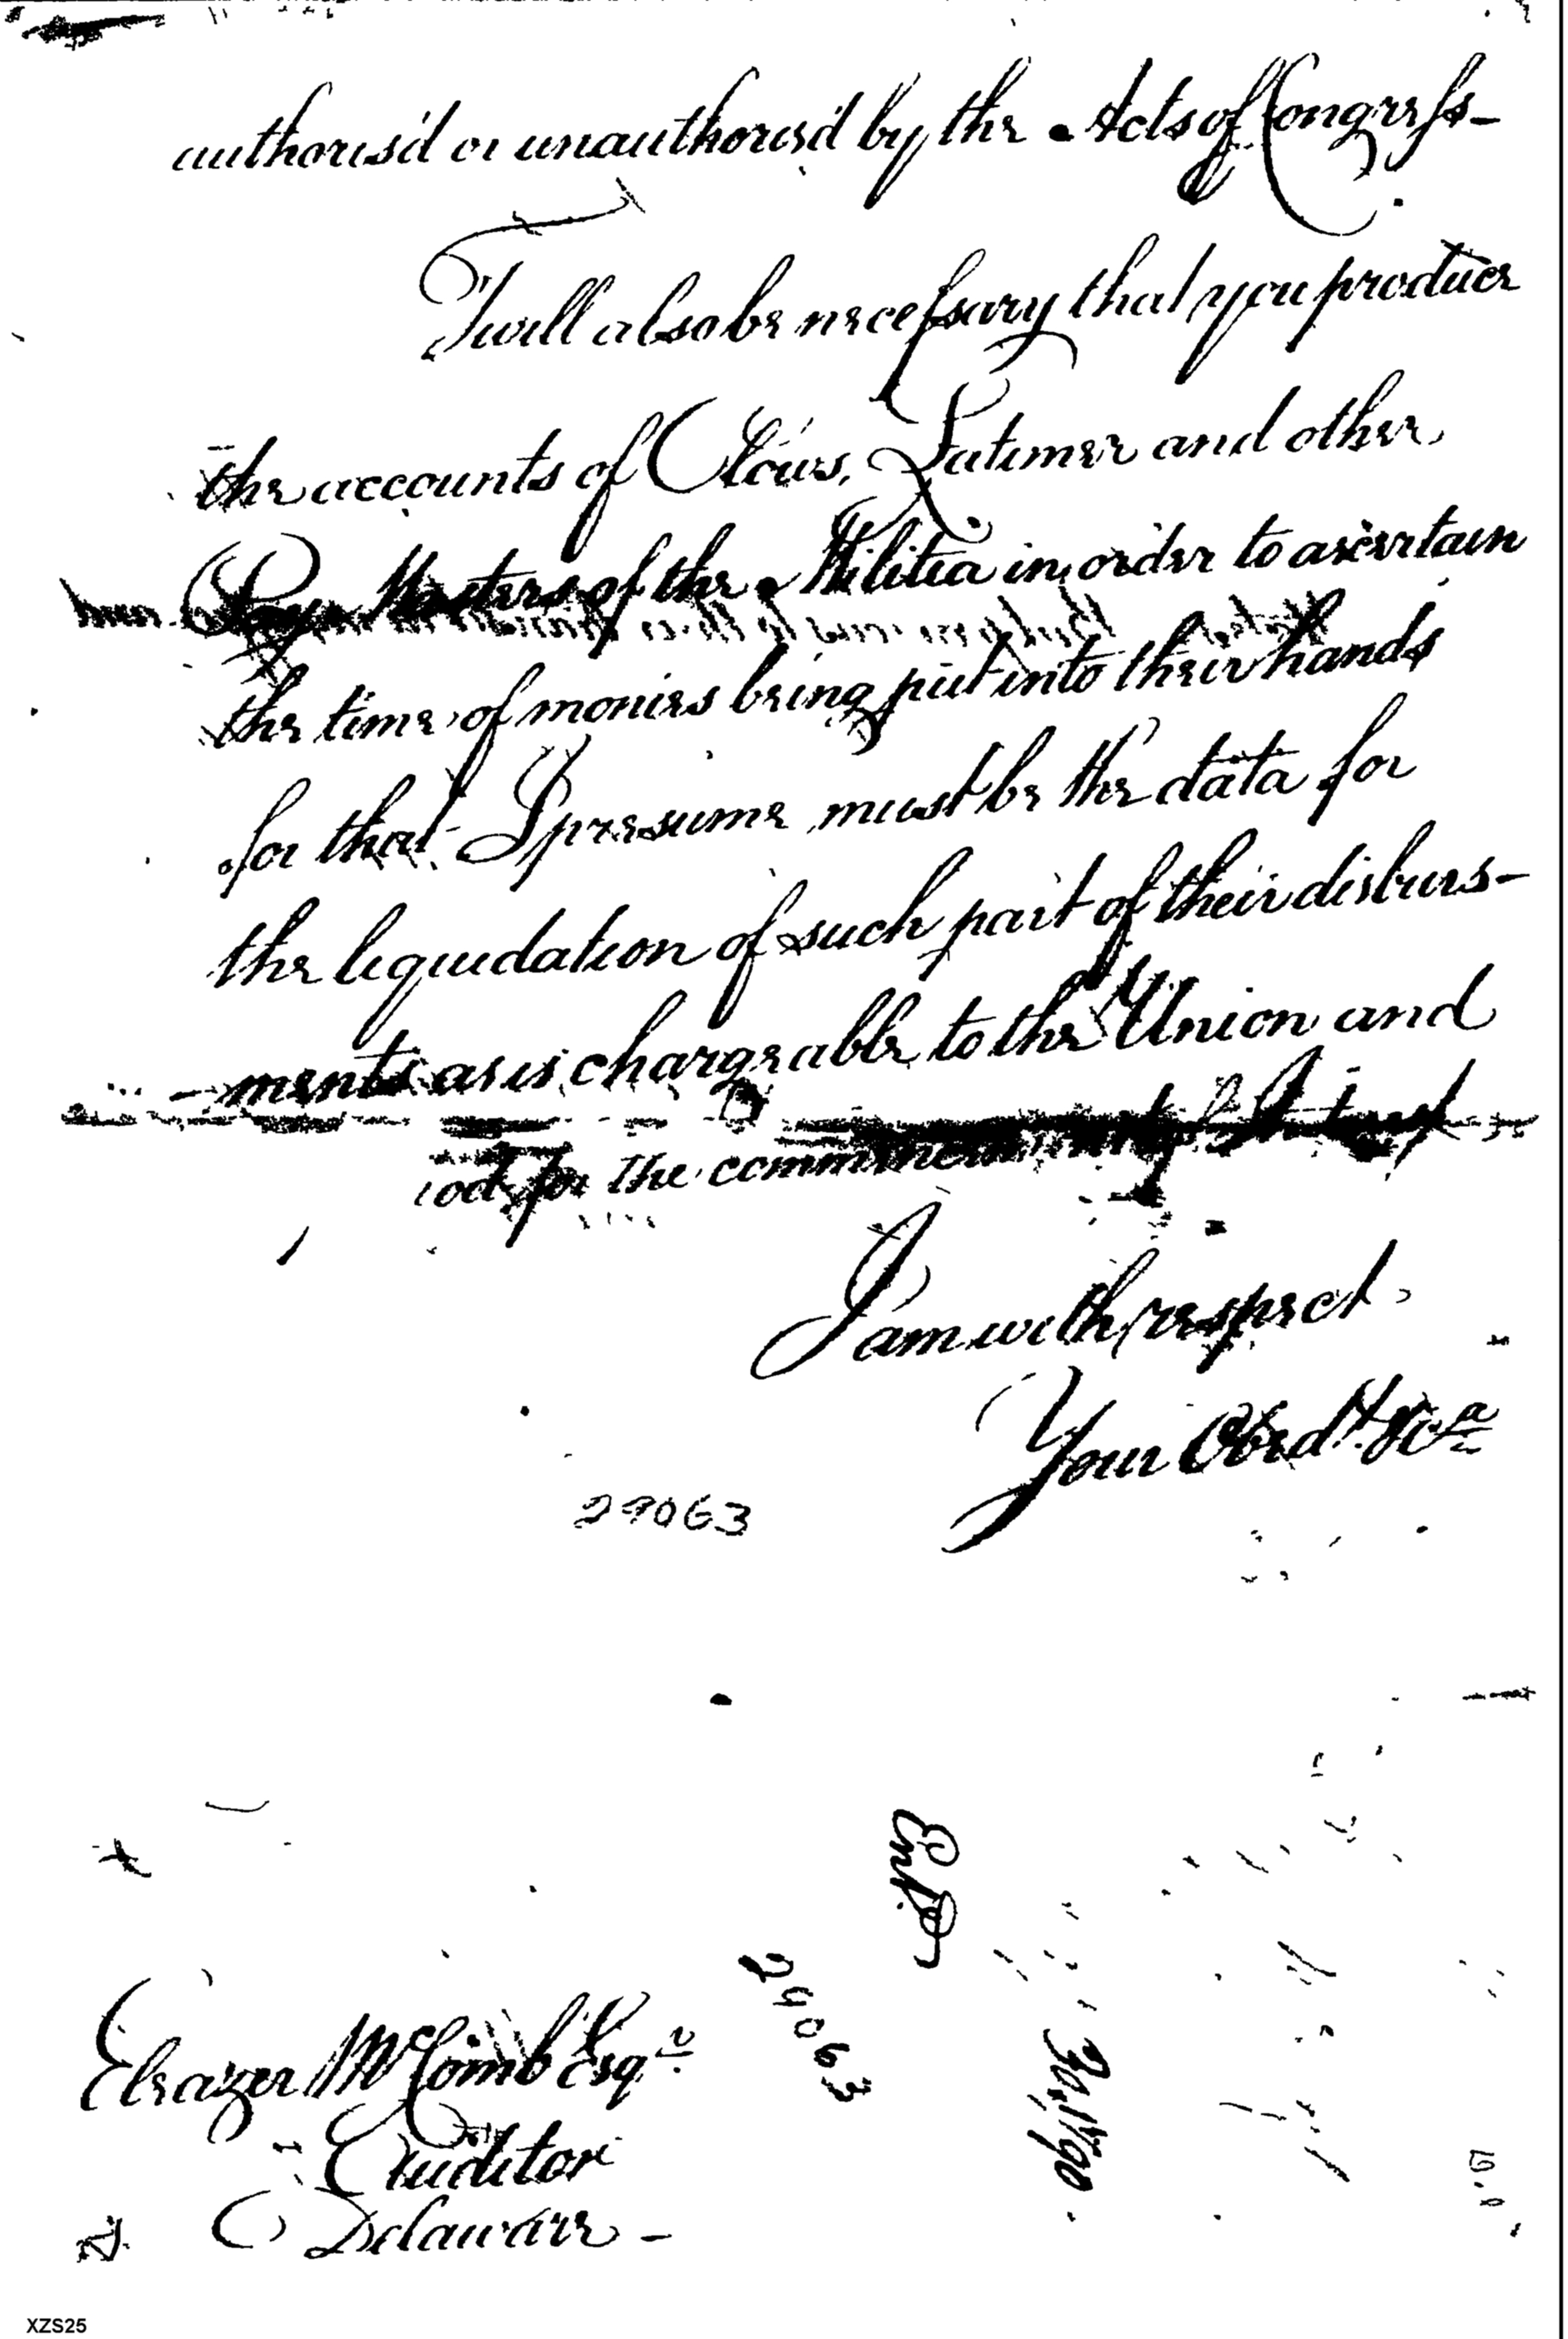 authoris'd or unauthoris'd by the Acts of Congress-
Twill also be necessary that you produce
the accounts of Clows, Latimer and other
Pay Masters of the Militia in order to ascertain
the time of monies being put into their hands
for that I presume must be the data for
the liquidation of such part of their disburs-
-ments as is chargeable to the Union and
iod for the commencement of Interest
I am with respect
Your Obed.t &c a
29063
Eleazer McComb Esqr
Auditor
Delaware -
29063
XZS25